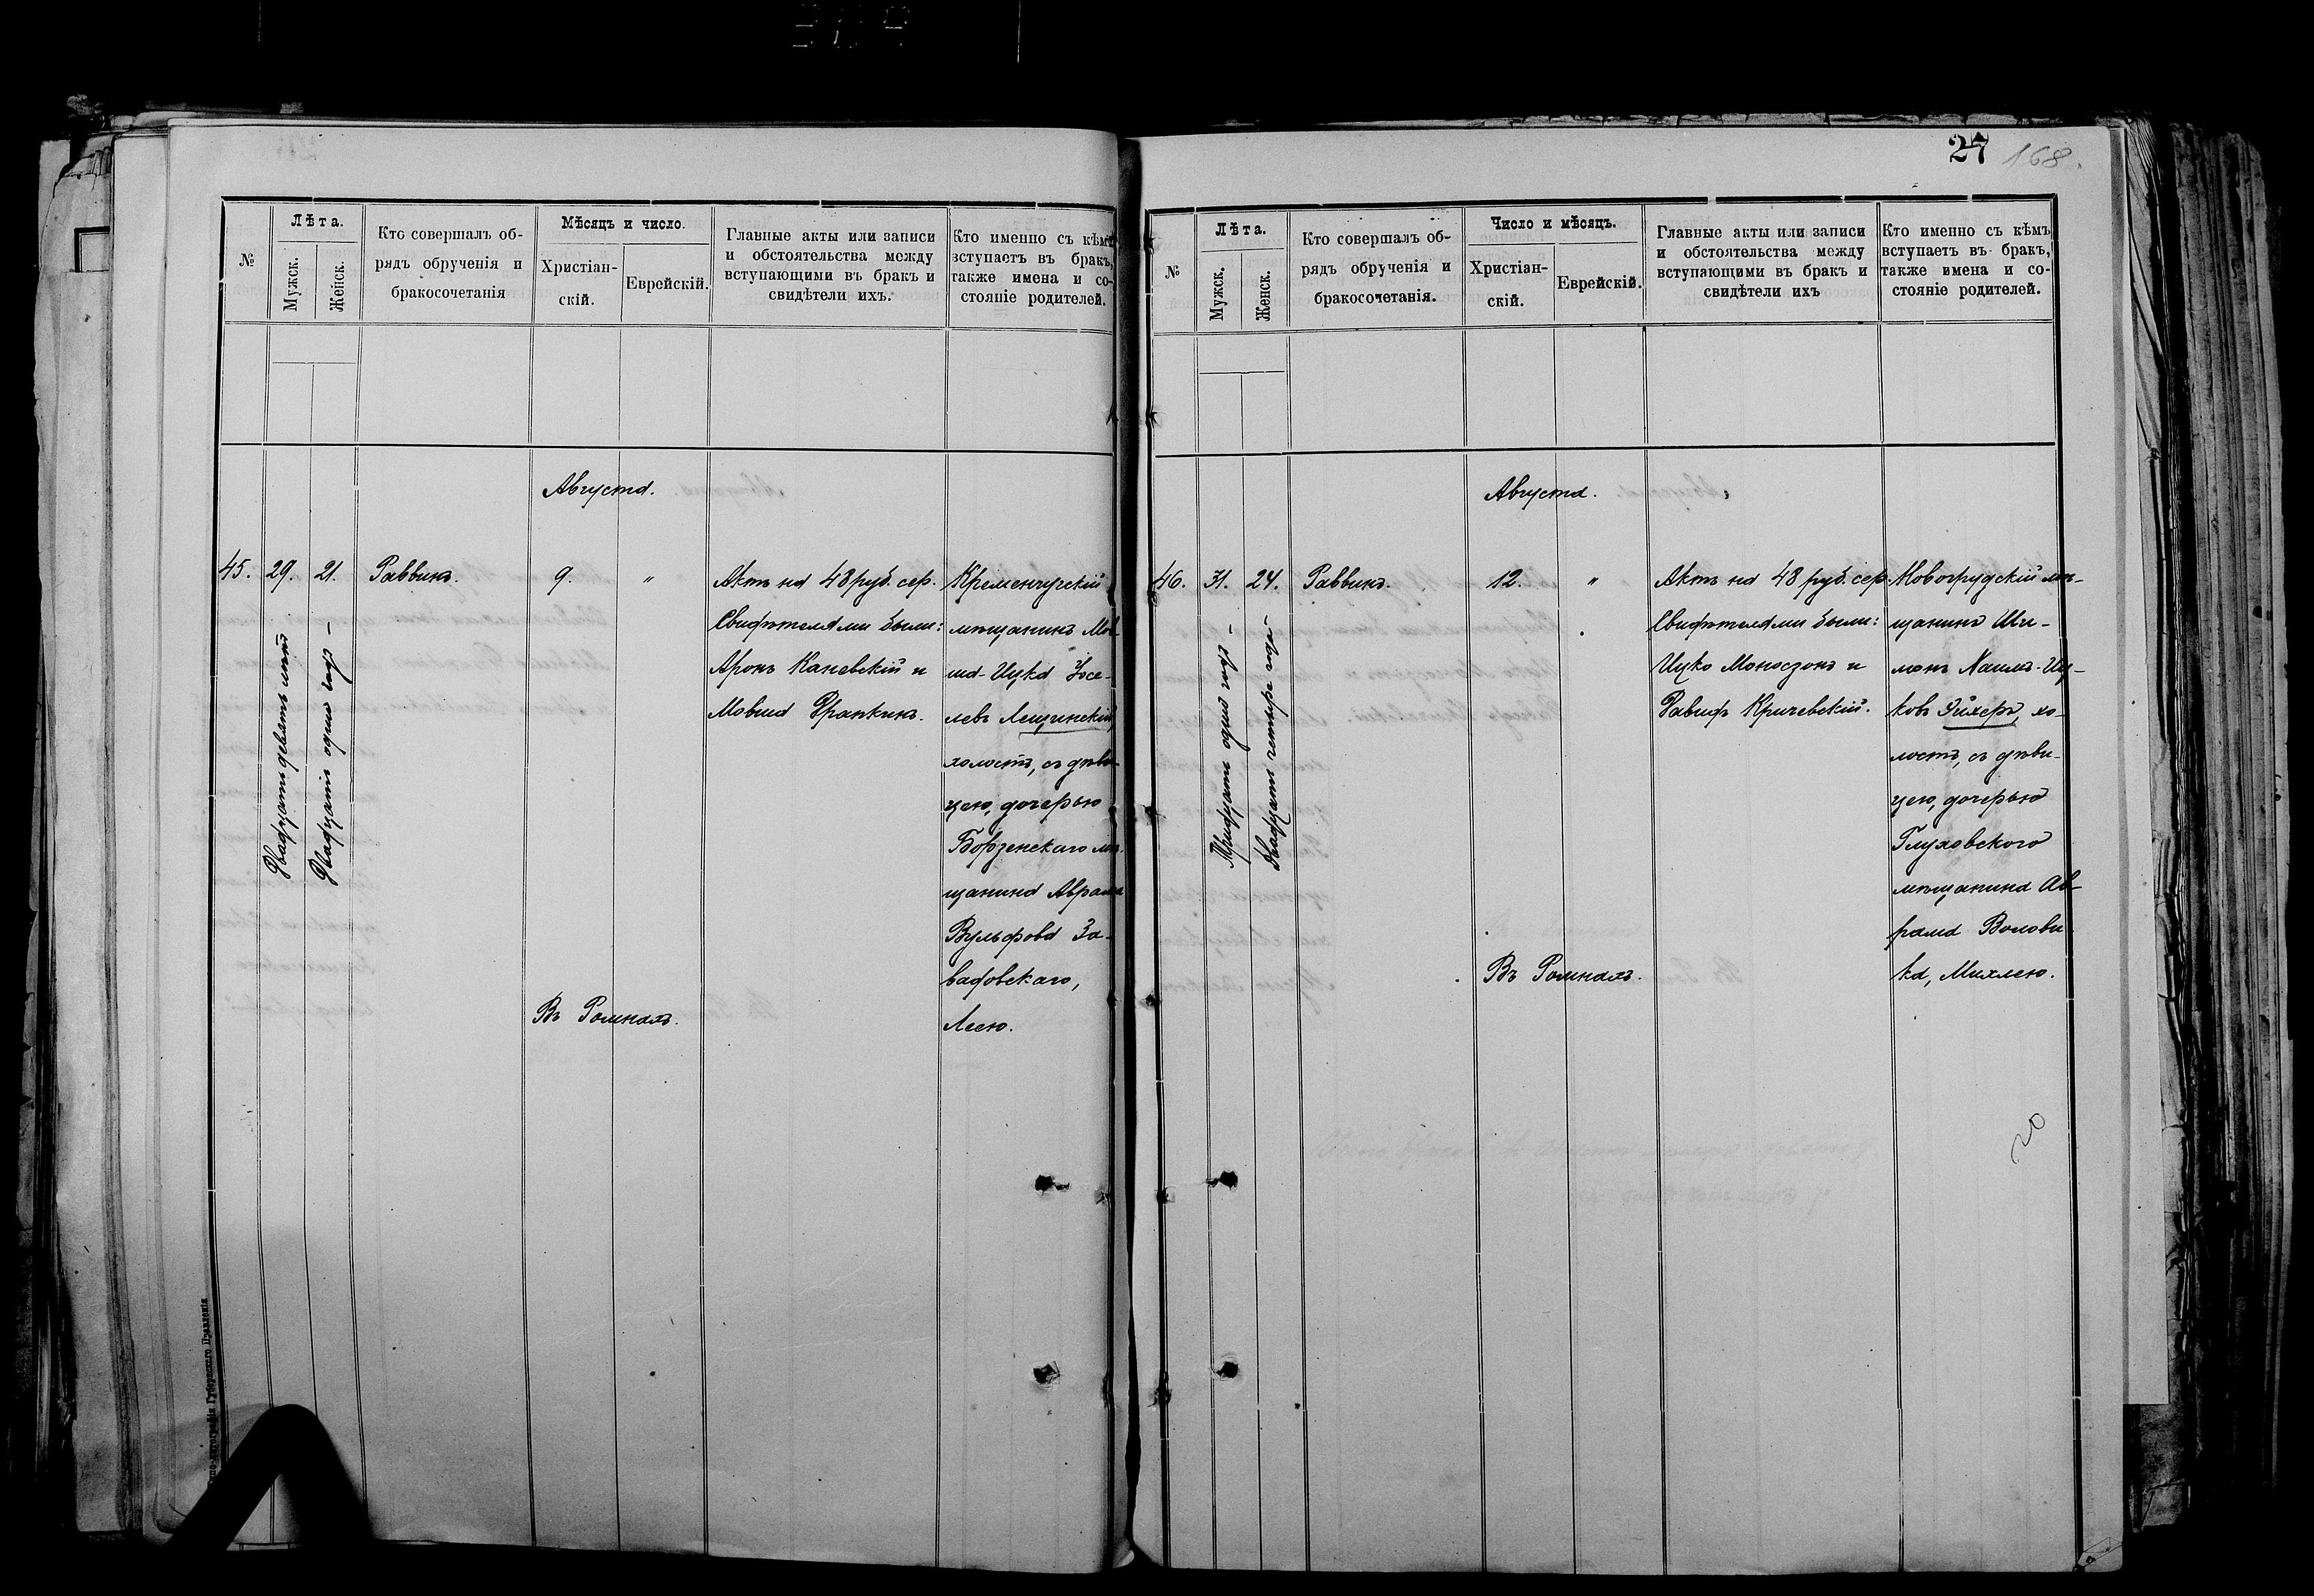 27 168.
№
Лѣта.
Мужск.
Женск.
Кто совершалъ об-
рядъ обрученія и
бракосочетанія
Мѣсяцъ и число.
Христіан-
скій.
Еврейскій.
Главные акты или записи
и обстоятельства между
вступающими въ бракъ и
свидѣтели ихъ.
Кто именно съ кѣмъ
вступаетъ въ бракъ,
также имена и со-
стояніе родителей.
Августа.
45. 29. 21. Раввинъ. 9. "
Двадцать девять лѣтъ
Двадцать одинъ годъ –
Актъ на 48 руб. сер.
Свидѣтелями были:
Аронъ Каневскій и
Мовша Франкинъ.
Кременчугскій
мѣщанинъ Мов-
ша-Ицка Іосе-
левъ Лещинскій,
холостъ, съ дѣви-
цею, дочерью
Борзенскаго мѣ-
щанина Аврама
Вульфова За-
вадовскаго,
Леею.
Въ Ромнахъ.
Губернскаго Правленія
№
Лѣта.
Мужск.
Женск.
Кто совершалъ об-
рядъ обрученія и
бракосочетанія.
Число и мѣсяцъ.
Христіан-
скій.
Еврейскій.
Главные акты или записи
и обстоятельства между
вступающими въ бракъ и
свидѣтели ихъ
Кто именно съ кѣмъ
вступаетъ въ бракъ,
также имена и со-
стояніе родителей.
Августа.
46. 31. 24. Раввинъ. 12. "
Тридцать одинъ годъ –
Двадцать четыре года –
Актъ на 48 руб. сер.
Свидѣтелями были:
Ицко Моносзонъ и
Давидъ Кричевскій.
Новогрудскій мѣ-
щанинъ Ши-
монъ Хаимъ-Иц-
ковъ Эйхеръ, хо-
лостъ, съ дѣви-
цею, дочерью
Глуховского
мѣщанина Ав-
рама Волови-
ка, Михлею.
Въ Ромнахъ.
20